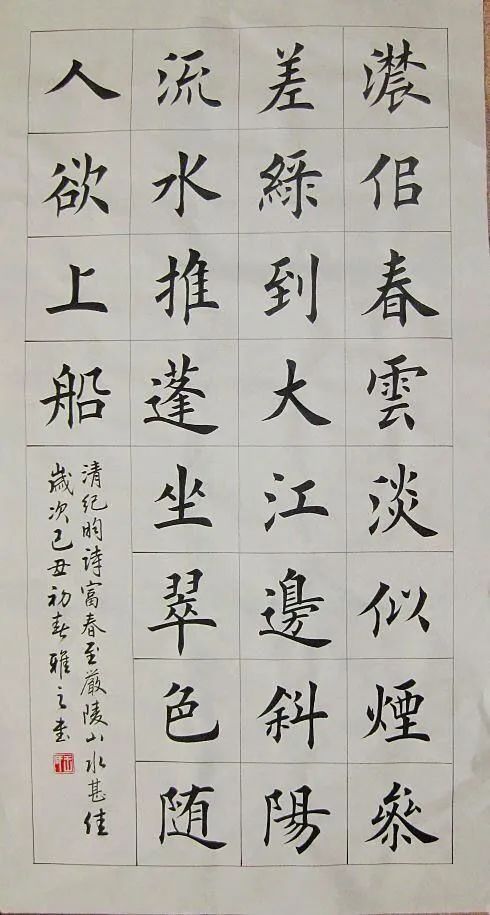 濃佀春雲淡似煙叅
差綠到大江邊斜陽
流水推蓬坐翠色随
人欲上船
清纪昀詩富春至嚴陵山水甚佳
歲次己丑初春雅之書